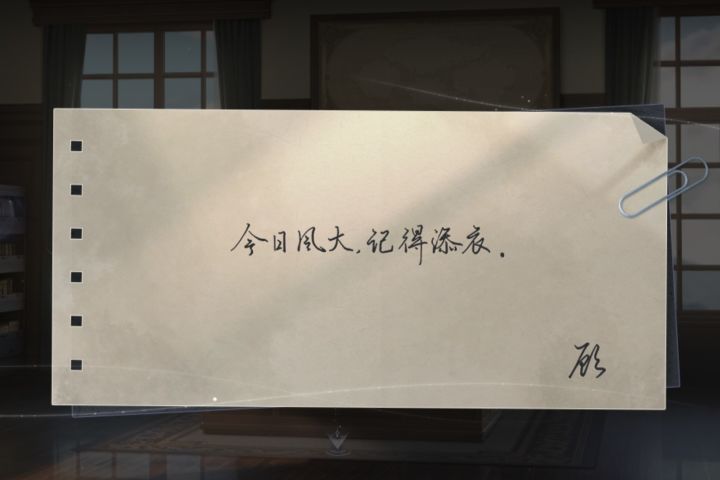 今日风大,记得添衣.
顾